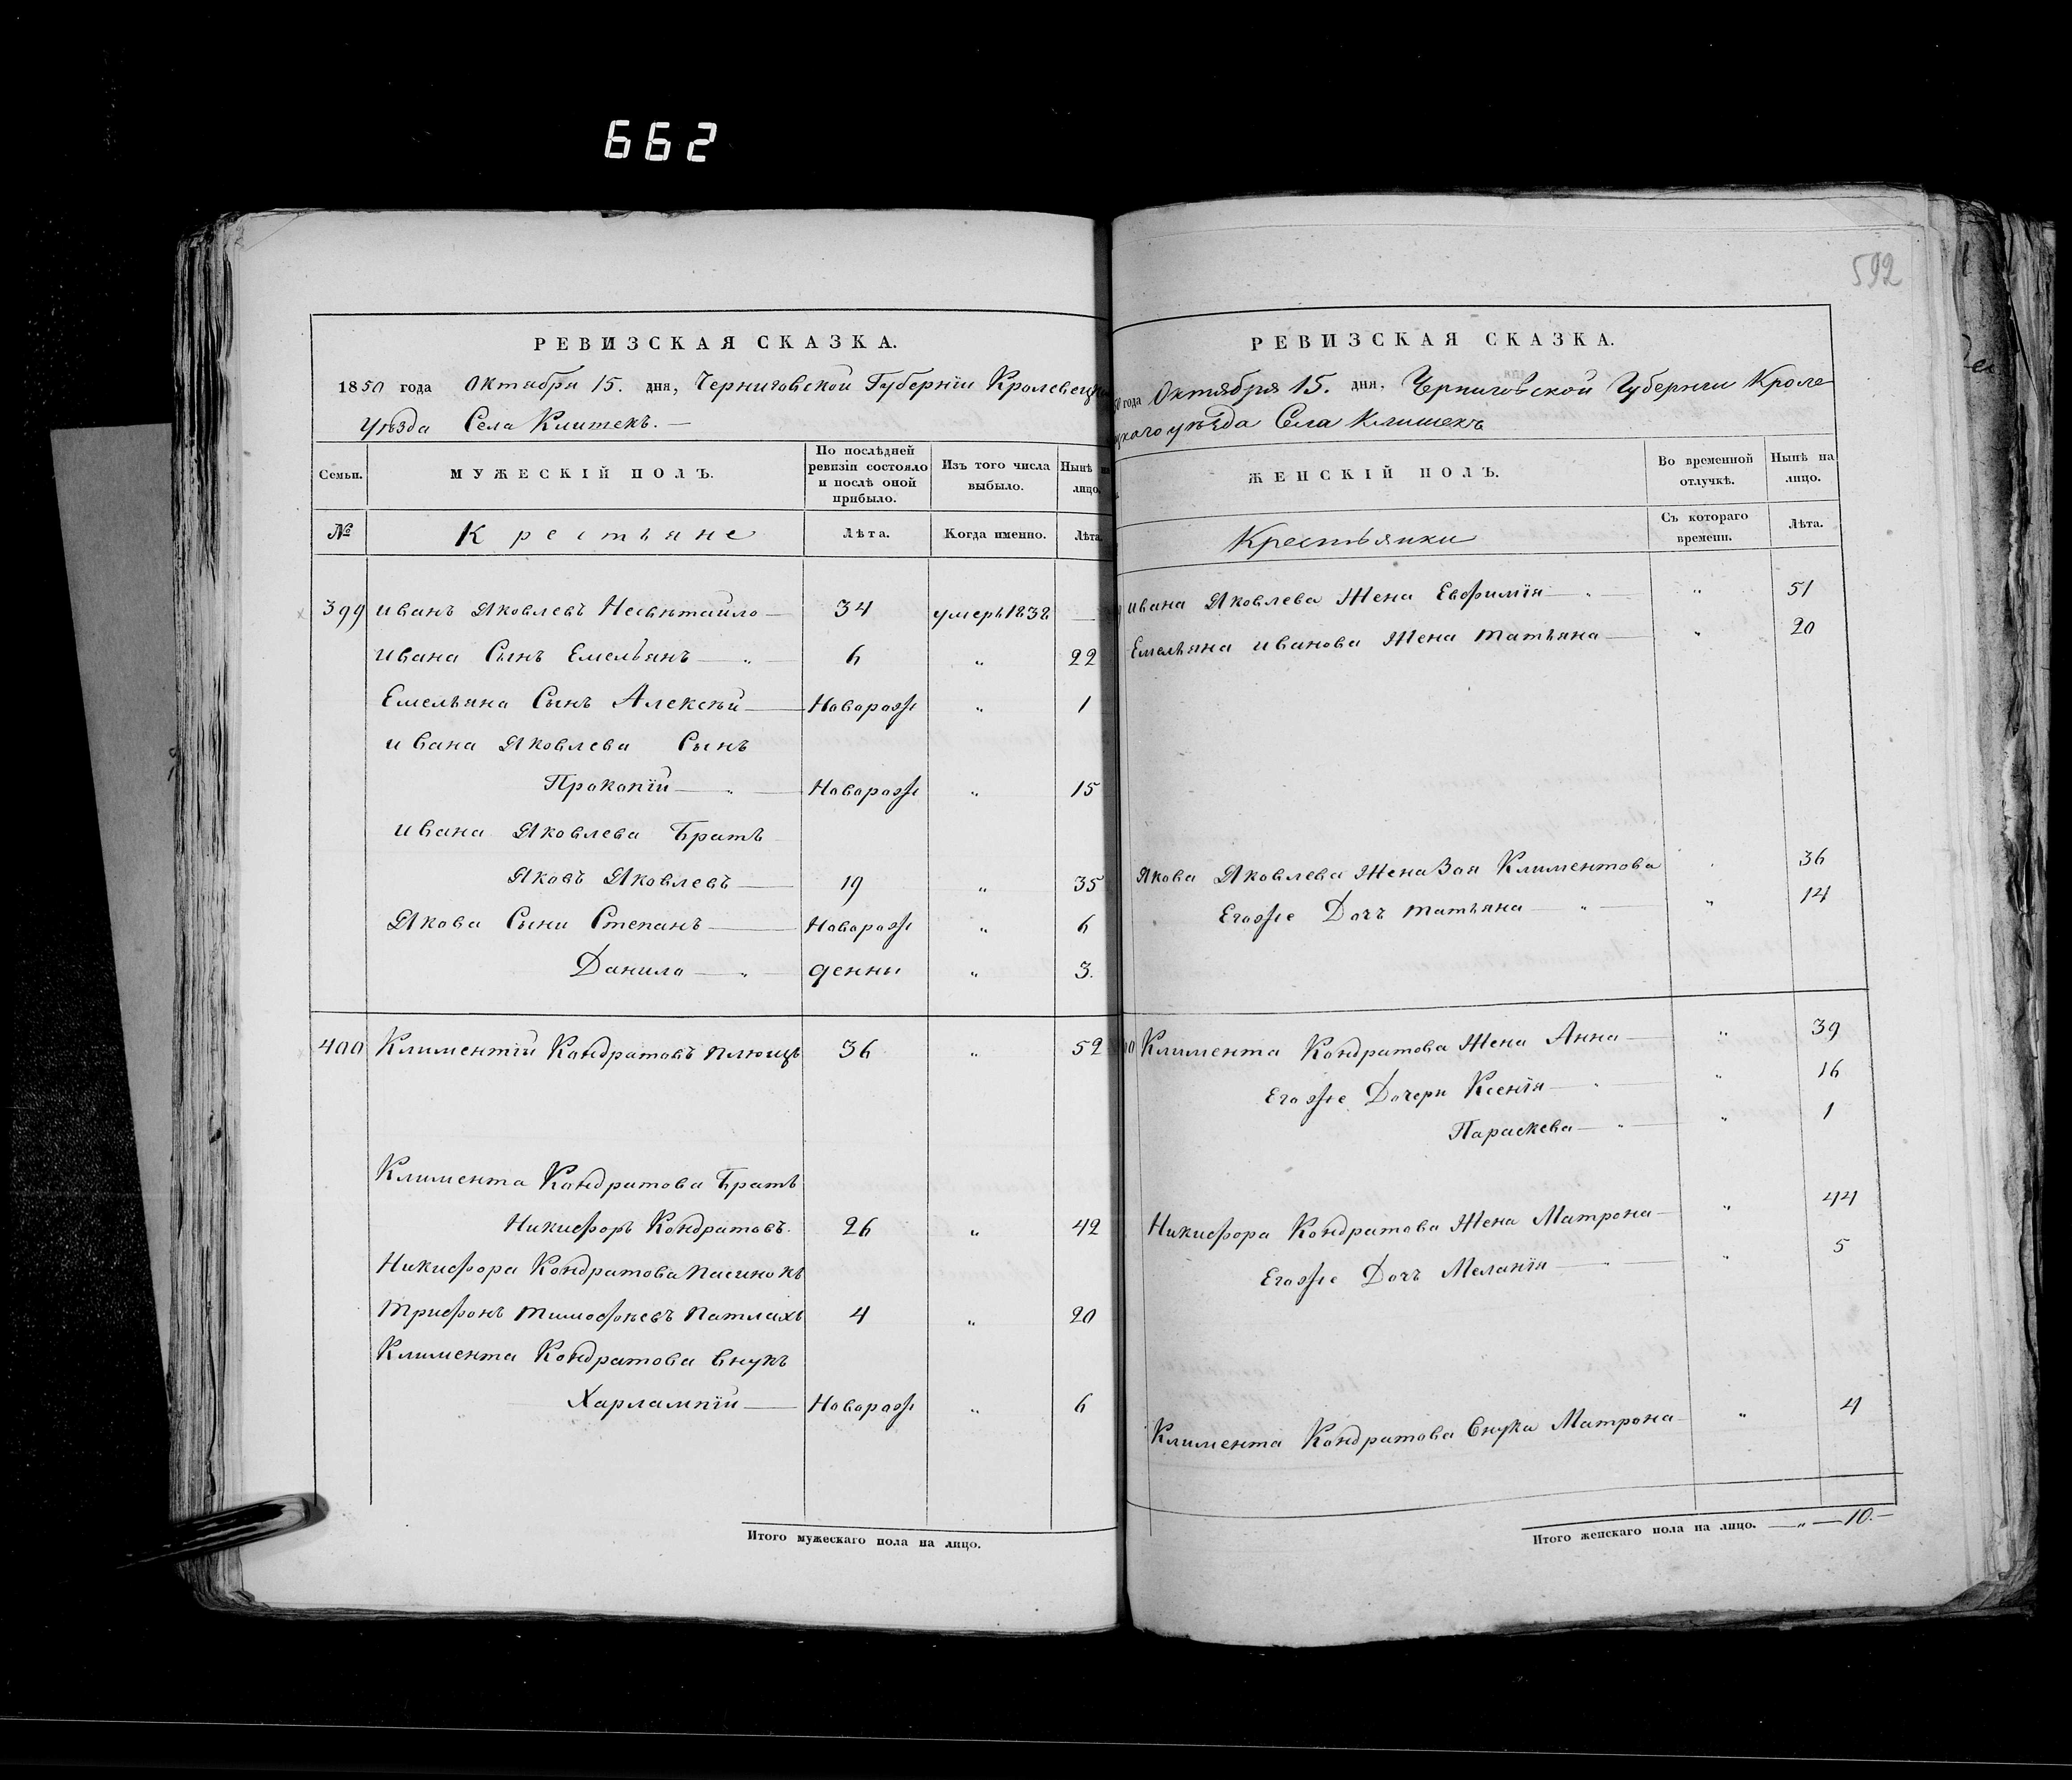 662
592
РЕВИЗСКАЯ СКАЗКА.
1850 года Октября 15. дня, Черниговской Губерніи Кролевец
Уѣзда Села Клишекъ. —
Семьи. МУЖЕСКІЙ ПОЛЪ. По послѣдней ревизіи состояло и послѣ оной прибыло. Изъ того числа выбыло. Нынѣ на лицо.
№ Крестьяне Лѣта. Когда именно. Лѣта.
399 Иванъ Яковлевъ Несвѣтайло — 34 умеръ 1838 —
Ивана Сынъ Емельянъ — „ 6 „ 22
Емельяна Сынъ Алексѣй — Новорож „ 1
Ивана Яковлева Сынъ
Прокопій — „ — Новорож „ 15
Ивана Яковлева Братъ
Яковъ Яковлевъ — 19 „ 35
Якова Сыни Степанъ — Новорож „ 6
Данило — „ — денни „ 3.
400 Климентій Кондратовъ 36 „ 52
Климента Кондратова Братъ
Никифоръ Кондратовъ. 26 „ 42
Никифора Кондратова пасинокъ
Трифонъ Тимофѣевъ Патлахъ 4 „ 20
Климента Кондратова Внукъ
Харлампій — Новорож „ 6
Итого мужескаго пола на лицо.
РЕВИЗСКАЯ СКАЗКА.
года Октября 15. дня, Черниговской Губерніи Кроле
цкаго уѣзда Села Клишекъ
ЖЕНСКІЙ ПОЛЪ. Во временной отлучкѣ. Нынѣ на лицо.
Крестьянки Съ котораго времени. Лѣта.
Ивана Яковлева Жена Евфимія — „ — „ 51
Емельяна Иванова Жена Татьяна — „ 20
Якова Яковлева Жена Зоя Климентова „ 36
Егоже Дочъ Татьяна — „ — „ 14
Климента Кондратова Жена Анна — „ 39
Егоже Дочери Ксенія — „ — „ 16
Параскева — „ — „ 1
Никифора Кондратова Жена Матрона — „ 44
Егоже Дочъ Меланія — „ — „ 5
Климента Кондратова Внука Матрона — „ 4
Итого женскаго пола на лицо. — „ — 10. —